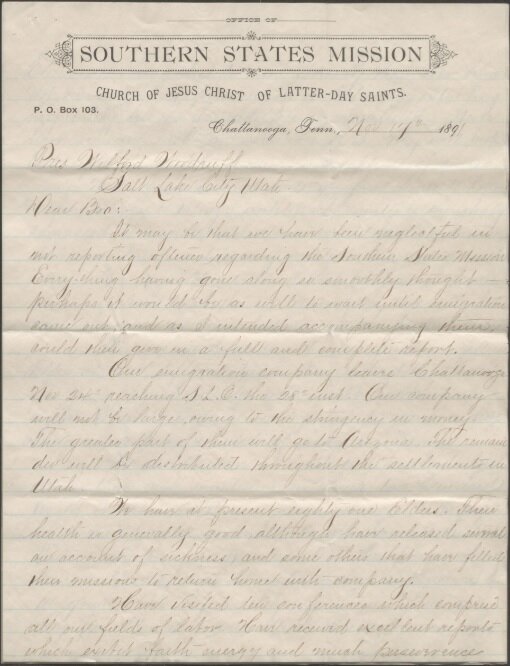 OFFICE OF
SOUTHERN STATES MISSION
CHURCH OF JESUS CHRIST OF LATTER-DAY SAINTS.
P. O. Box 103.
Chattanooga, Tenn., Nov 189
Pres Wilford Woodruff
Salt Lake City Utah.
Dear Bro:
It may be that we have been neglectful in
not reporting oftener regarding the Southern States Mission
Everything having gone along so smoothly thought —
perhaps it would be as well to wait until emigration
came out, and as I intended accompanying them,
could then give in a full and complete report.
Our emigration company leave Chattanooga
Nov 24th reaching S L C. the 28th inst. Our company
will not be large, owing to the stringency in money
The greater part of them will go to Arizona. The remain
der will be distributed throughout the settlements in
Utah.
We have at present eighty one Elders. Their
health is generally good although have released several
on account of sickness and some others that have filled
their missions to return home with company.
Have visited ten conferences which comprise
all our fields of labor Have received excellent reports
which exhibit faith energy and much perseverence